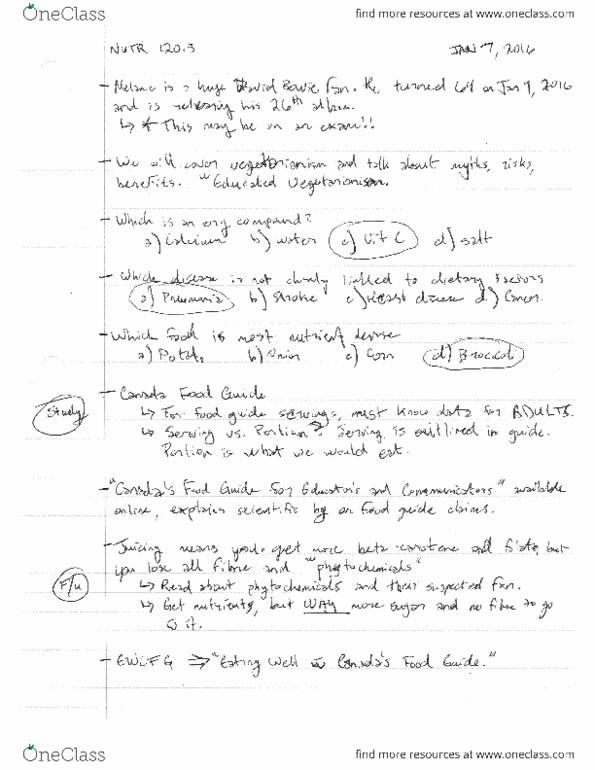 OneClass
find more resources at www.oneclass.com
NUTR 120.3
JAN 7, 2016
- Melanie is a huge David Bowie fan. He turned 69 on Jan 7, 2016
and is releasing his 26th album.
↳ * This may be on an exam!!
- We will cover vegetarianism and talk about myths, risks,
benefits. "Educated vegetarianism.
- Which is an org compound?
a) Calcium b) water c) Vit C d) salt
- Which disease is not closely linked to dietary factors
a) Pneumonia b) Stroke c) Heart disease d) Cancer.
- Which food is most nutrient dense
a) Potato b) Onion c) Corn d) Broccoli
- Canada Food Guide
Study
↳ For food guide servings, must know data for ADULTS.
↳ Serving vs. Portion? Serving is outlined in guide.
Portion is what we would eat.
- "Canada's Food Guide for Educators and Communicators" available
online, explains scientific by an food guide claims.
- Juicing means you get more beta-carotene and but
you lose all fibre and "phytochemicals"
F/u
↳ Read about phytochemicals and their suspected fxn.
↳ Get nutrients, but WAY more sugar and no fibre to go
it.
- EWCFG ⇒ "Eating Well Canada's Food Guide."
OneClass
find more resources at www.oneclass.com